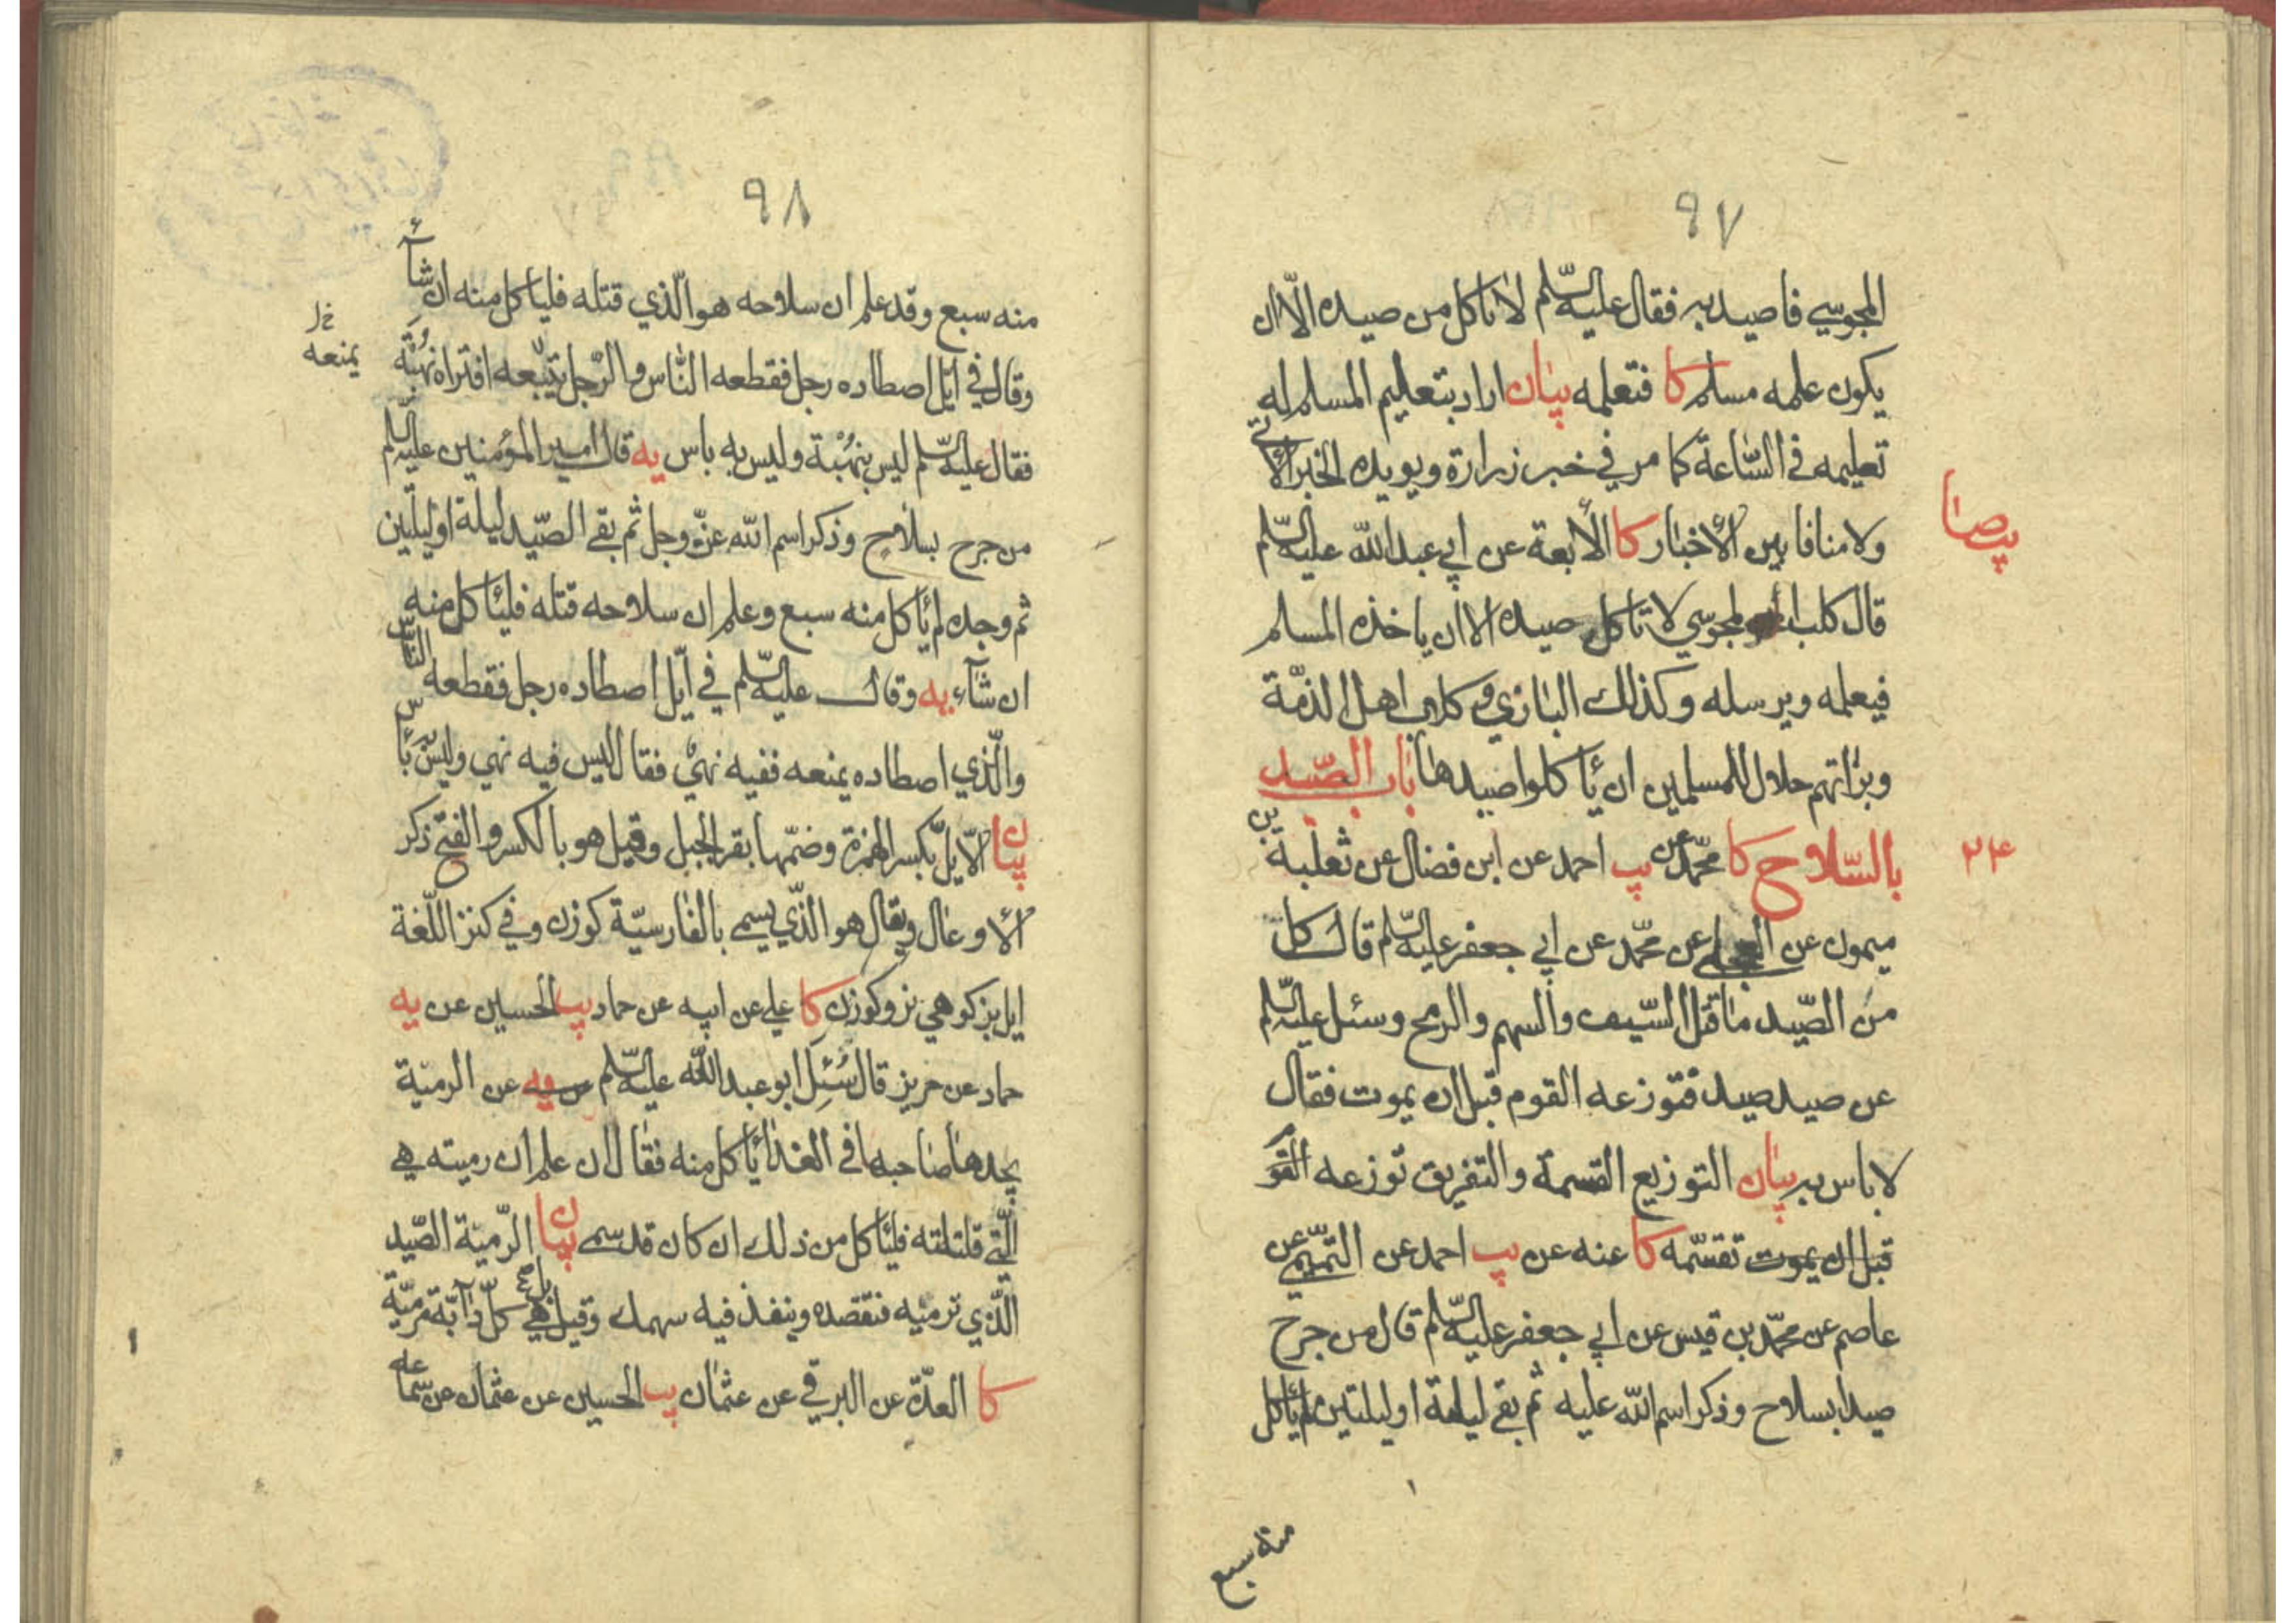 ٩٧
المجوسي فاصيد به فقال عليه السّلم لا تاكل من صيده الّا ان
يكون علمه مسلم كا فتعلمه بيان اراد بتعليم المسلم له
تعليمه في السّاعة كما مر في خبر زرارة ويويده الخبر الآتي
ولا منافا بين الأخبار كا الأربعة عن ابي عبد الله عليه السّلم
پ صا
قال كلب المجوسي لا تاكل صيده الا ان ياخذه المسلم
فيعلمه ويرسله وكذلك البازي وكلاب اهل الذمّة
وبزاتهم حلال للمسلمين ان يأكلوا صيدها باب الصّيد
بالسّلاح كا محمّد عن يب احمد عن ابن فضال عن ثعلبة بن
٢٤
ميمون عن العجلي عن محمّد عن ابي جعفر عليه السّلم قال كل
من الصّيد ما قتل السّيف والسهم والرمح وسئل عليه السّلم
عن صيد صيد فتوزعه القوم قبل ان يموت فقال
لا باس به بيان التوزيع القسمة والتفريق توزعه القوم
قبل ان يموت تقسّمه كا عنه عن يب احمد عن التميمي عن
عاصم عن محمّد بن قيس عن ابي جعفر عليه السّلم قال من جرح
صيدا بسلاح وذكر اسم الله عليه ثم بقي ليلة او ليلتين لم يأكل
منه سبع
٩٨
منه سبع وقد علم ان سلاحه هو الّذي قتله فلياكل منه ان شآء
وقال في ايّل اصطاده رجل فقطعه النّاس والرّجل يتبعه افتراه نهبة
يمنعه
فقال عليه السّلم ليس بنهبة وليس به باس يه قال امير المؤمنين عليه السّلم
من جرح بسلاح وذكر اسم الله عزّ وجل ثم بقي الصّيد ليلة او ليلتين
ثم وجده لم يأكل منه سبع وعلم ان سلاحه قتله فليأكل منه
ان شآء يه وقال عليه السّلم في ايّل اصطاده رجل فقطعه النّاس
والّذي اصطاده يمنعه ففيه نهي فقال ليس فيه نهي وليس به بأس
بيان الايّل بكسر الهمزة وضمّها بقر الجبل وقيل هو بالكسر والفتح ذكر
الأوعال ويقال هو الّذي يسمى بالفارسيّة كوزن وفي كنز اللّغة
ايل بز كوهي نر وكوزن كا علي عن ابيه عن حماد يب الحسين عن يه
حماد عن حريز قال سُئِل ابو عبد الله عليه السّلم عن الرميّة
يجدها صاحبها في الغد أيأكل منه فقال ان علم ان رميته هي
الّتي قتلته فليأكل من ذلك ان كان قد سمى بيان الرّميّة الصّيد
الّذي ترميه فتقصده وينفذ فيه سهمك وقيل هي كلّ دآبّة مرميّة
كا العدّة عن البرقي عن عثمان يب الحسين عن عثمان عن سماعه